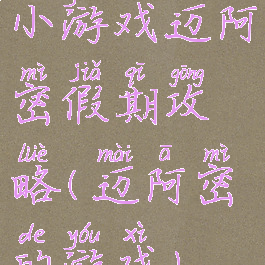 小游戏迈阿
mì jiǎ qī gōng
密假期攻
lüè mài ā mì
略(迈阿密
de yóu xì
的游戏)